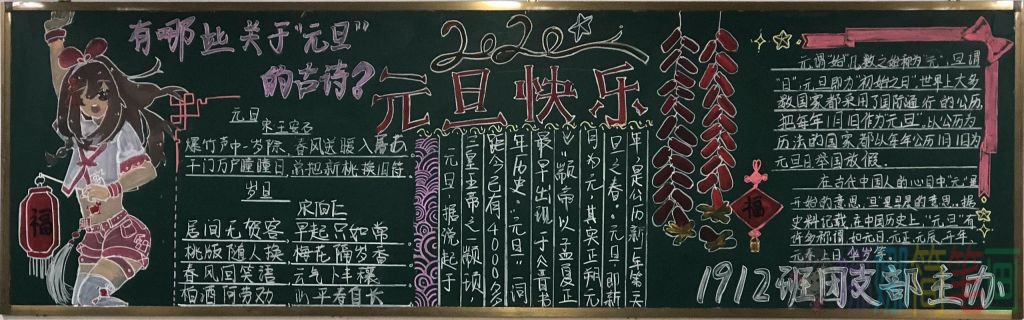 有哪些关于“元旦”
的古诗?
元旦
宋王安石
爆竹声中一岁除,春风送暖入屠苏
千门万户曈曈日,总把新桃换旧符.
岁旦
宋伯仁
居间无贺客,早起只如常
桃版随人换,梅花隔岁香
春风回笑语,云气卜丰穰
柏酒何劳劝,心平寿自长
福
2020
元旦快乐
年,是公历新一年第一天
旦之春。“元旦”即新
月为元,其实正朔元
》颛帝以孟夏正
最早出现于《晋书
年历史。“元旦”一词
距今已有4000多
三皇五帝之一颛顼,
元旦,据说起于
福
元谓“始”,凡数之始称为“元”,旦谓
“日”,“元旦”即为“初始之日”世界上大多
数国家都采用了国际通行的公历,
把每年1月1日作为元旦”,以公历为
历法的国家都以每年公历1月1日为
元旦日举国放假。
在古代中国人的心目中“元”是
开始的意思,“旦”是早晨的意思,据
史料记载,在中国历史上,“元旦”有
许多称谓,如元日、元正、元辰、
元春、上日、岁等。
1912班团支部主办
简笔画